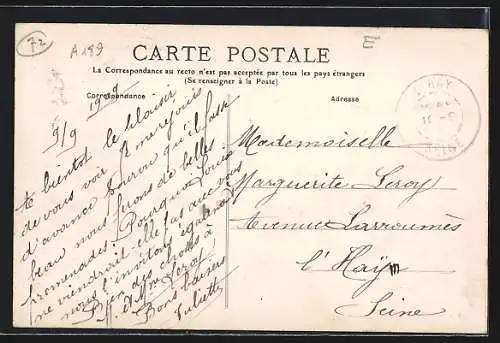 72
A199
E
CARTE POSTALE
La Correspondance au recto n'est pas acceptée par tous les pays étrangers
(Se renseigner à la Poste)
Correspondance
Adresse
9/9 1909
A bientot le plaisir
de vous voir je me rejouis
d'avance pourvu qu'il fasse
beau nous ferons de belles
promenades. Pourquoi Louise
ne viendrait-elle pas avec vous
nous l'invitons également
Bien des choses à
M. et Mme Leroy
Bons baisers
Juliette
L'HAY
SEINE
Mademoiselle
Marguerite Leroy
Avenue Larroumès
l'Hay
Seine